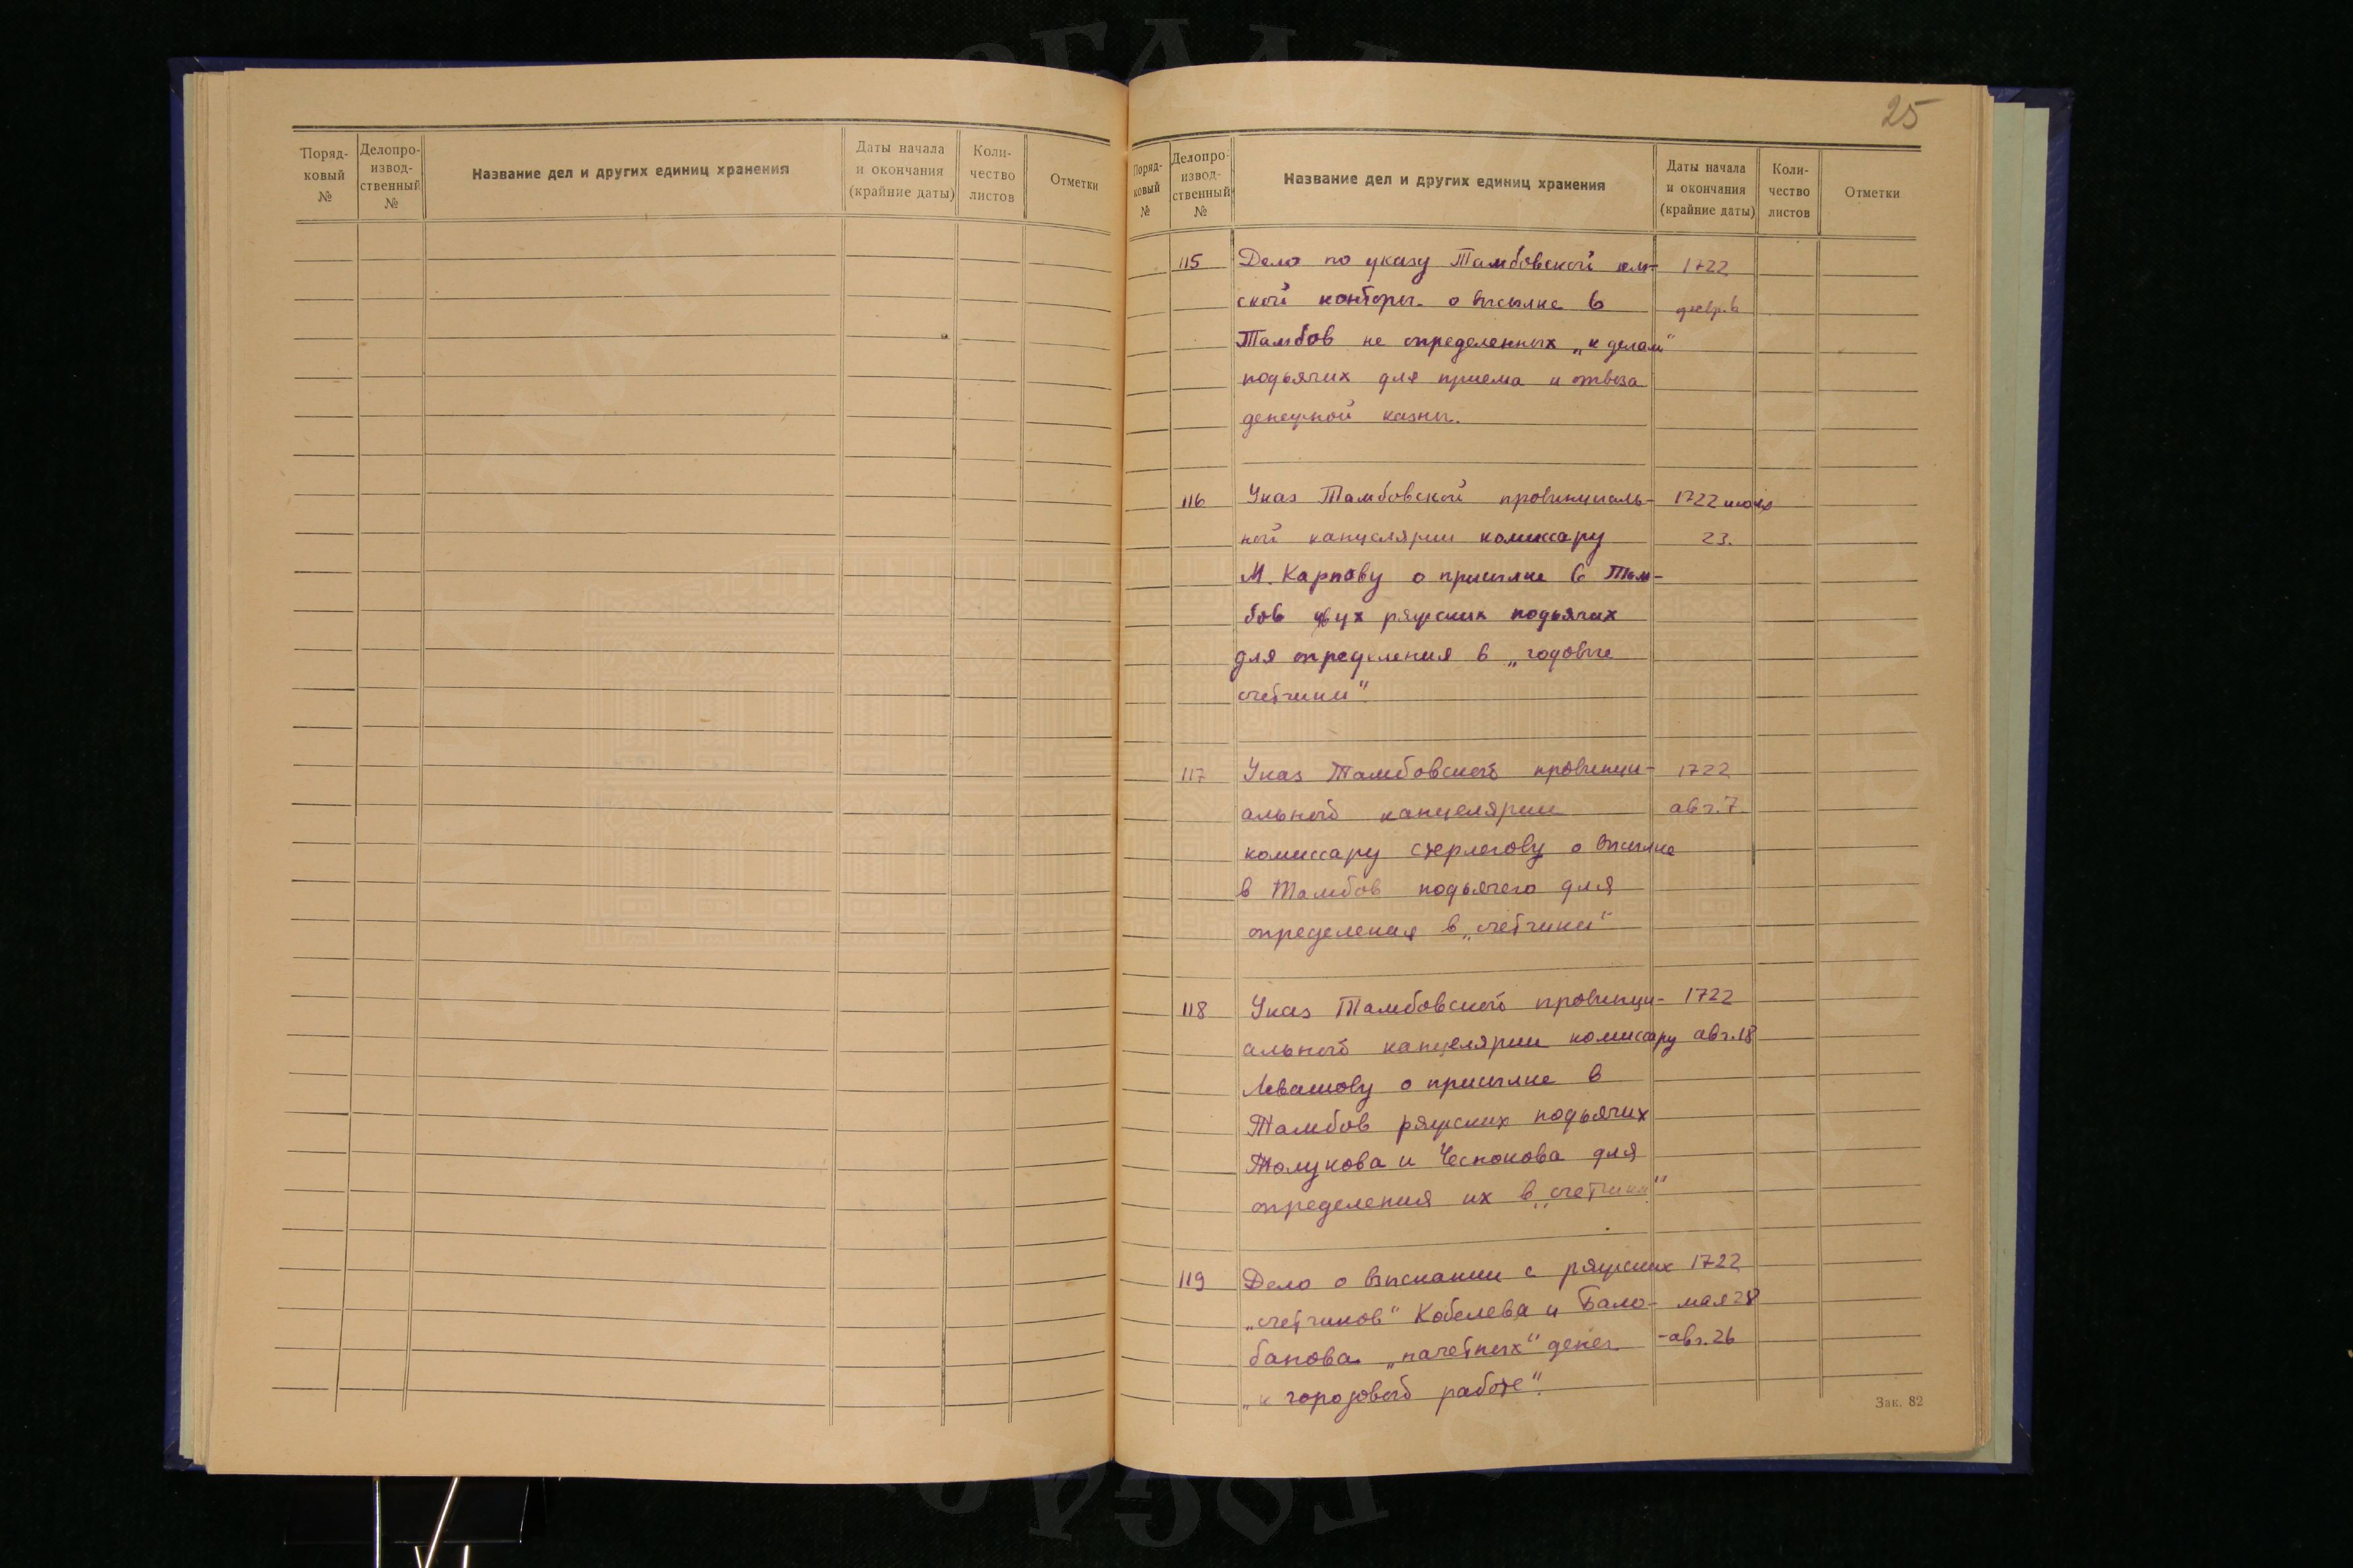 25
Поряд-
ковый
№
Делопро-
извод-
ственный
№
Название дел и других единиц хранения
Даты начала
и окончания
(крайние даты)
Коли-
чество
листов
Отметки
Поряд-
ковый
№
Делопро-
извод-
ственный
№
Название дел и других единиц хранения
Даты начала
и окончания
(крайние даты)
Коли-
чество
листов
Отметки
115 Дело по указу Тамбовской 1722
ской конторы о высылке в
Тамбов не определенных „к делам"
подьячих для приема и отвоза
денежной казны.
116 Указ Тамбовской провинциаль- 1722 июля
ной канцелярии комиссару 23.
М. Карпову о присылке в Там-
бов двух ряжских подьячих
для определения в „годовые
счетчики".
117 Указ Тамбовской провинци- 1722
альной канцелярии авг. 7
комиссару Стерлегову о высылке
в Тамбов подьячего для
определения в „счетчики"
118 Указ Тамбовской провинци- 1722
альной канцелярии комиссару авг. 18
Левашову о присылке в
Тамбов ряжских подьячих
Толукова и Чеснокова для
определения их в „счетчики".
119 Дело о взыскании с ряжских 1722
„счетчиков" Кобелева и Бало- мая 28
банова „начетных" денег -авг. 26
„к городовой работе".
Зак. 82